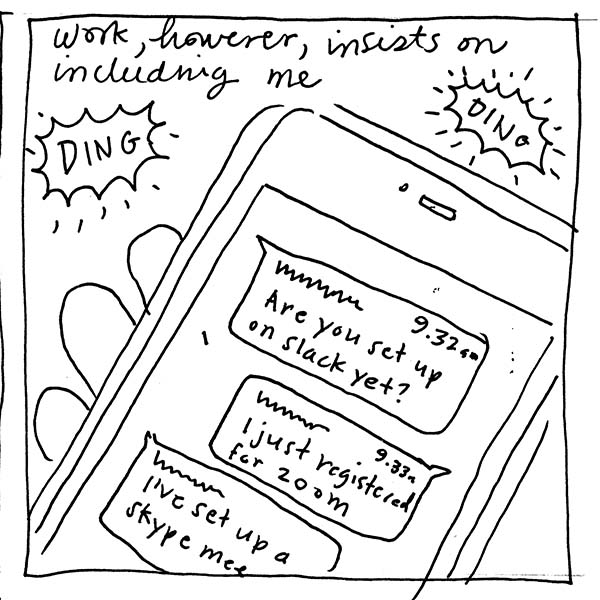 work, however, insists on
including me
DING
DING
9.32am
Are you set up
on slack yet?
9.33a
I just registered
for zoom
I've set up a
skype mee